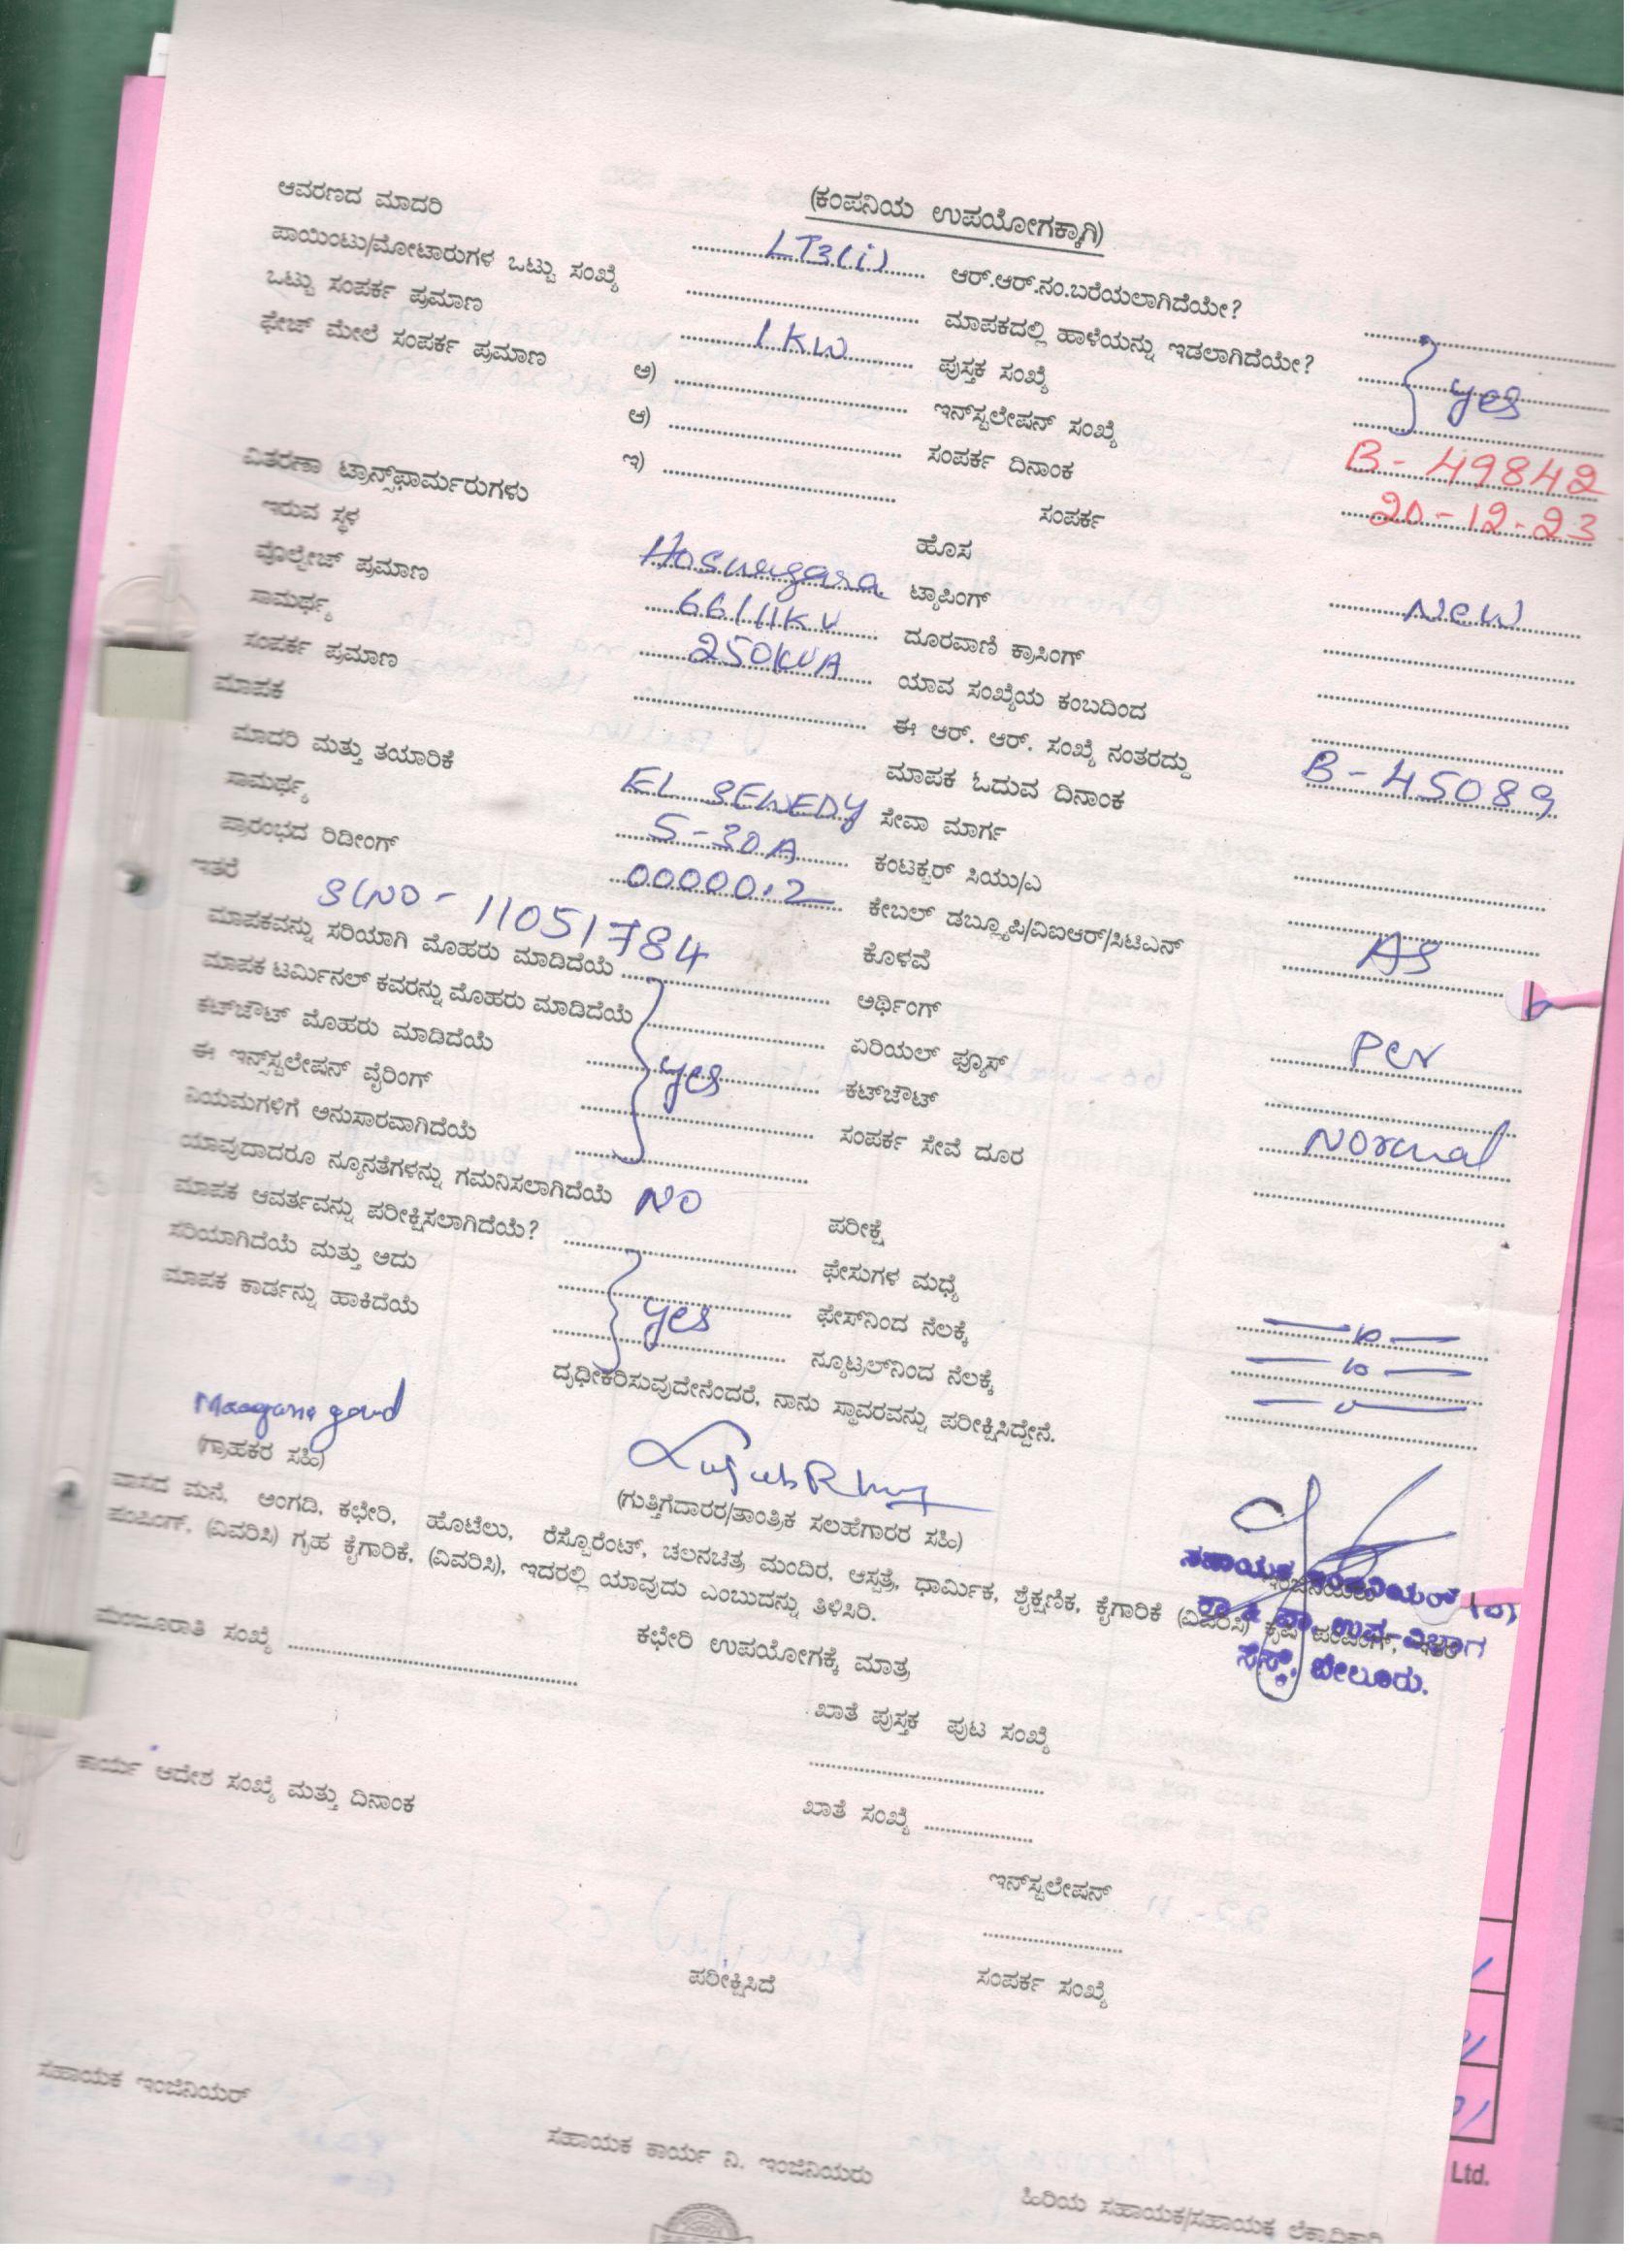 (ಕಂಪನಿಯ ಉಪಯೋಗಕ್ಕಾಗಿ)
ಆವರಣದ ಮಾದರಿ LT3(i) ಆರ್.ಆರ್.ನಂ.ಬರೆಯಲಾಗಿದೆಯೇ?
ಪಾಯಿಂಟು/ಮೋಟಾರುಗಳ ಒಟ್ಟು ಸಂಖ್ಯೆ ಮಾಪಕದಲ್ಲಿ ಹಾಳೆಯನ್ನು ಇಡಲಾಗಿದೆಯೇ? yes
ಒಟ್ಟು ಸಂಪರ್ಕ ಪ್ರಮಾಣ 1 KW ಪುಸ್ತಕ ಸಂಖ್ಯೆ
ಫೇಜ್ ಮೇಲೆ ಸಂಪರ್ಕ ಪ್ರಮಾಣ ಅ) ಇನ್‌ಸ್ಟಲೇಷನ್ ಸಂಖ್ಯೆ B - 49842
ಆ) ಸಂಪರ್ಕ ದಿನಾಂಕ 20-12-23
ಇ) ಸಂಪರ್ಕ
ವಿತರಣಾ ಟ್ರಾನ್ಸ್‌ಫಾರ್ಮರುಗಳು ಹೊಸ New
ಇರುವ ಸ್ಥಳ ಟ್ಯಾಪಿಂಗ್
ವೊಲ್ಟೇಜ್ ಪ್ರಮಾಣ 66/11KV ದೂರವಾಣಿ ಕ್ರಾಸಿಂಗ್
ಸಾಮರ್ಥ್ಯ 250KVA ಯಾವ ಸಂಖ್ಯೆಯ ಕಂಬದಿಂದ
ಸಂಪರ್ಕ ಪ್ರಮಾಣ ಈ ಆರ್. ಆರ್. ಸಂಖ್ಯೆ ನಂತರದ್ದು B - 45089
ಮಾಪಕ ಮಾಪಕ ಓದುವ ದಿನಾಂಕ
ಮಾದರಿ ಮತ್ತು ತಯಾರಿಕೆ EL SEWEDY ಸೇವಾ ಮಾರ್ಗ
ಸಾಮರ್ಥ್ಯ 5-30A ಕಂಟಕ್ಟರ್ ಸಿಯು/ಎ
ಪ್ರಾರಂಭದ ರಿಡೀಂಗ್ 00000.2 ಕೇಬಲ್ ಡಬ್ಲ್ಯೂಪಿ/ವಿಐಆರ್/ಸಿಟಿಎನ್ As
ಇತರೆ Slno - 11051784 ಕೊಳವೆ
ಮಾಪಕವನ್ನು ಸರಿಯಾಗಿ ಮೊಹರು ಮಾಡಿದೆಯೆ ಅರ್ಥಿಂಗ್ Per
ಮಾಪಕ ಟರ್ಮಿನಲ್ ಕವರನ್ನು ಮೊಹರು ಮಾಡಿದೆಯೆ ಏರಿಯಲ್ ಫ್ಯೂಸ್
ಕಟ್‌ಔಟ್ ಮೊಹರು ಮಾಡಿದೆಯೆ yes ಕಟ್‌ಔಟ್ Normal
ಈ ಇನ್ಸ್‌ಸ್ಟಲೇಷನ್ ವೈರಿಂಗ್ ಸಂಪರ್ಕ ಸೇವೆ ದೂರ
ನಿಯಮಗಳಿಗೆ ಅನುಸಾರವಾಗಿದೆಯೆ
ಯಾವುದಾದರೂ ನ್ಯೂನತೆಗಳನ್ನು ಗಮನಿಸಲಾಗಿದೆಯೆ NO ಪರೀಕ್ಷೆ
ಮಾಪಕ ಆವರ್ತವನ್ನು ಪರೀಕ್ಷಿಸಲಾಗಿದೆಯೆ? ಫೇಸುಗಳ ಮಧ್ಯೆ
ಸರಿಯಾಗಿದೆಯೆ ಮತ್ತು ಅದು yes ಫೇಸ್‌ನಿಂದ ನೆಲಕ್ಕೆ
ಮಾಪಕ ಕಾರ್ಡನ್ನು ಹಾಕಿದೆಯೆ ನ್ಯೂಟ್ರಲ್‌ನಿಂದ ನೆಲಕ್ಕೆ
ದೃಢೀಕರಿಸುವುದೇನೆಂದರೆ, ನಾನು ಸ್ಥಾವರವನ್ನು ಪರೀಕ್ಷಿಸಿದ್ದೇನೆ.
(ಗ್ರಾಹಕರ ಸಹಿ)
(ಗುತ್ತಿಗೆದಾರರ/ತಾಂತ್ರಿಕ ಸಲಹೆಗಾರರ ಸಹಿ)
ಸಹಾಯಕ ಇಂಜಿನಿಯರ್ (ವಿ)
ಕಾ & ಪಾ. ಉಪ-ವಿಭಾಗ
ಸೆಸ್ಕ್, ಬೇಲೂರು.
ವಾಸದ ಮನೆ, ಅಂಗಡಿ, ಕಛೇರಿ, ಹೊಟೆಲು, ರೆಸ್ಟೊರೆಂಟ್, ಚಲನಚಿತ್ರ ಮಂದಿರ, ಆಸ್ಪತ್ರೆ, ಧಾರ್ಮಿಕ, ಶೈಕ್ಷಣಿಕ, ಕೈಗಾರಿಕೆ (ವಿವರಿಸಿ) ಕೃಷಿ ಪಂಪಿಂಗ್, ಇತರೆ
ಪಂಪಿಂಗ್, (ವಿವರಿಸಿ) ಗೃಹ ಕೈಗಾರಿಕೆ, (ವಿವರಿಸಿ), ಇದರಲ್ಲಿ ಯಾವುದು ಎಂಬುದನ್ನು ತಿಳಿಸಿರಿ.
ಕಛೇರಿ ಉಪಯೋಗಕ್ಕೆ ಮಾತ್ರ
ಮಂಜೂರಾತಿ ಸಂಖ್ಯೆ
ಖಾತೆ ಪುಸ್ತಕ ಪುಟ ಸಂಖ್ಯೆ
ಕಾರ್ಯ ಆದೇಶ ಸಂಖ್ಯೆ ಮತ್ತು ದಿನಾಂಕ
ಖಾತೆ ಸಂಖ್ಯೆ
ಇನ್‌ಸ್ಟಲೇಷನ್
ಪರೀಕ್ಷಿಸಿದೆ
ಸಂಪರ್ಕ ಸಂಖ್ಯೆ
ಸಹಾಯಕ ಇಂಜಿನಿಯರ್
ಸಹಾಯಕ ಕಾರ್ಯ ನಿ. ಇಂಜಿನಿಯರು
ಹಿರಿಯ ಸಹಾಯಕ/ಸಹಾಯಕ ಲೆಕ್ಕಾಧಿಕಾರಿ
Ltd.